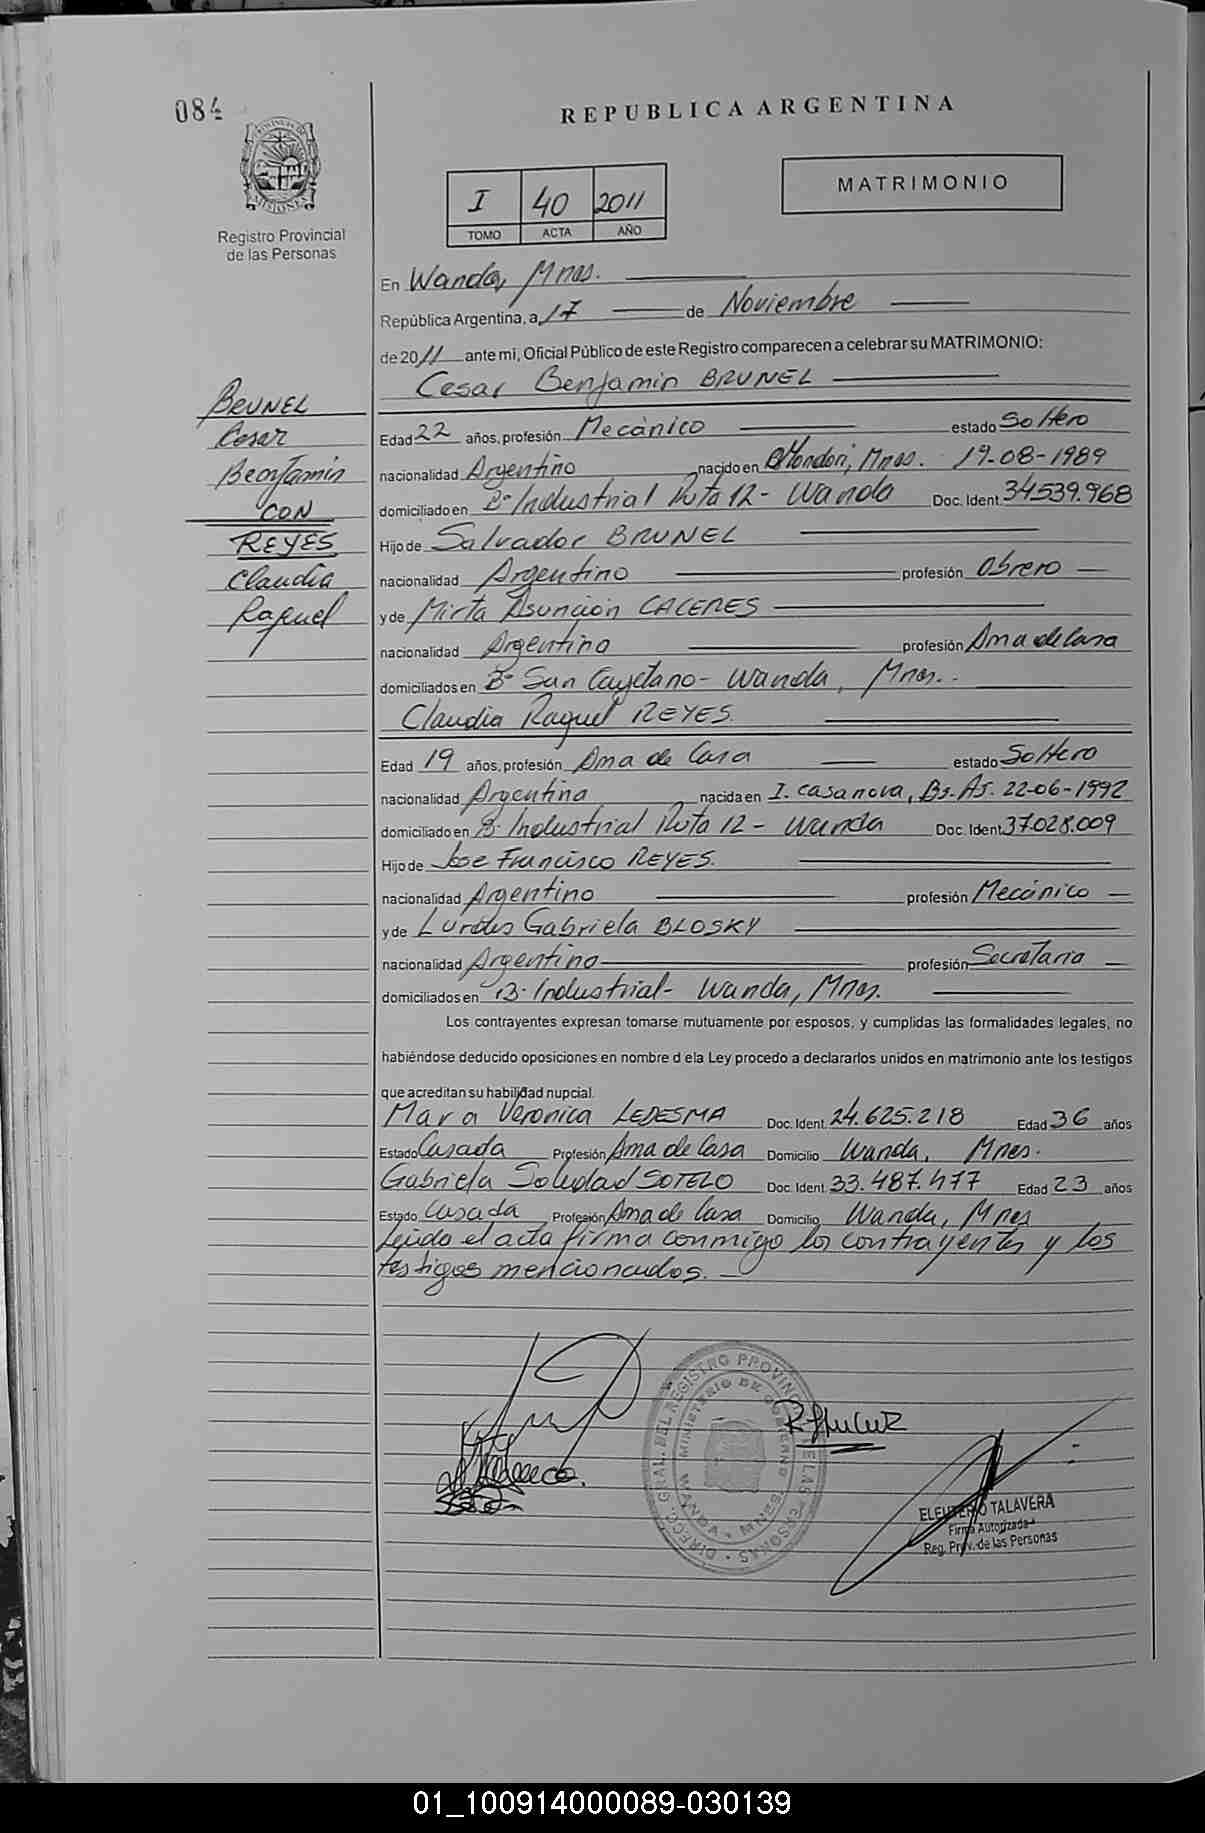 084
REPUBLICA ARGENTINA
PROVINCIA DE
MISIONES
Registro Provincial
de las Personas
I 40 2011
TOMO ACTA AÑO
MATRIMONIO
En Wanda, Mnes.
República Argentina, a 17 de Noviembre
de 2011 ante mi, Oficial Público de este Registro comparecen a celebrar su MATRIMONIO:
Cesar Benjamin BRUNEL
BRUNEL
Cesar
Benjamin
CON
REYES
Claudia
Raquel
Edad 22 años, profesión Mecánico estado Soltero
nacionalidad Argentino nacido en Mnes. 19-08-1989
domiciliado en Bº Industrial Ruta 12 - Wanda Doc. Ident. 34539.968
Hijo de Salvador BRUNEL
nacionalidad Argentino profesión Obrero
y de Mirta Asunción CACERES
nacionalidad Argentino profesión Ama de Casa
domiciliados en Bº San Cayetano - Wanda, Mnes.
Claudia Raquel REYES.
Edad 19 años, profesión Ama de Casa estado Soltero
nacionalidad Argentina nacida en I. Casanova, Bs. As. 22-06-1992
domiciliado en B. Industrial Ruta 12 - Wanda Doc. Ident. 37.028.009
Hijo de Jose Francisco REYES.
nacionalidad Argentino profesión Mecánico
y de Lurdes Gabriela BLOSKY
nacionalidad Argentino profesión Secretaria
domiciliados en B. Industrial - Wanda, Mnes.
Los contrayentes expresan tomarse mutuamente por esposos, y cumplidas las formalidades legales, no
habiéndose deducido oposiciones en nombre d ela Ley procedo a declararlos unidos en matrimonio ante los testigos
que acreditan su habilidad nupcial.
Mara Veronica LEDESMA Doc. Ident. 24.625.218 Edad 36 años
Estado Casada Profesión Ama de Casa Domicilio Wanda, Mnes.
Gabriela Soledad SOTELO Doc. Ident. 33.487.477 Edad 23 años
Estado Casada Profesión Ama de Casa Domicilio Wanda, Mnes
Leída el acta firma conmigo los contrayentes y los
testigos mencionados.
DIRECC. GRAL. DEL REGISTRO PROVINC. DE LAS PERSONAS
MINISTERIO DE GOBIERNO
WANDA - MNES.
ELEUTERIO TALAVERA
Firma Autorizada
Reg. Prov. de las Personas
01_100914000089-030139